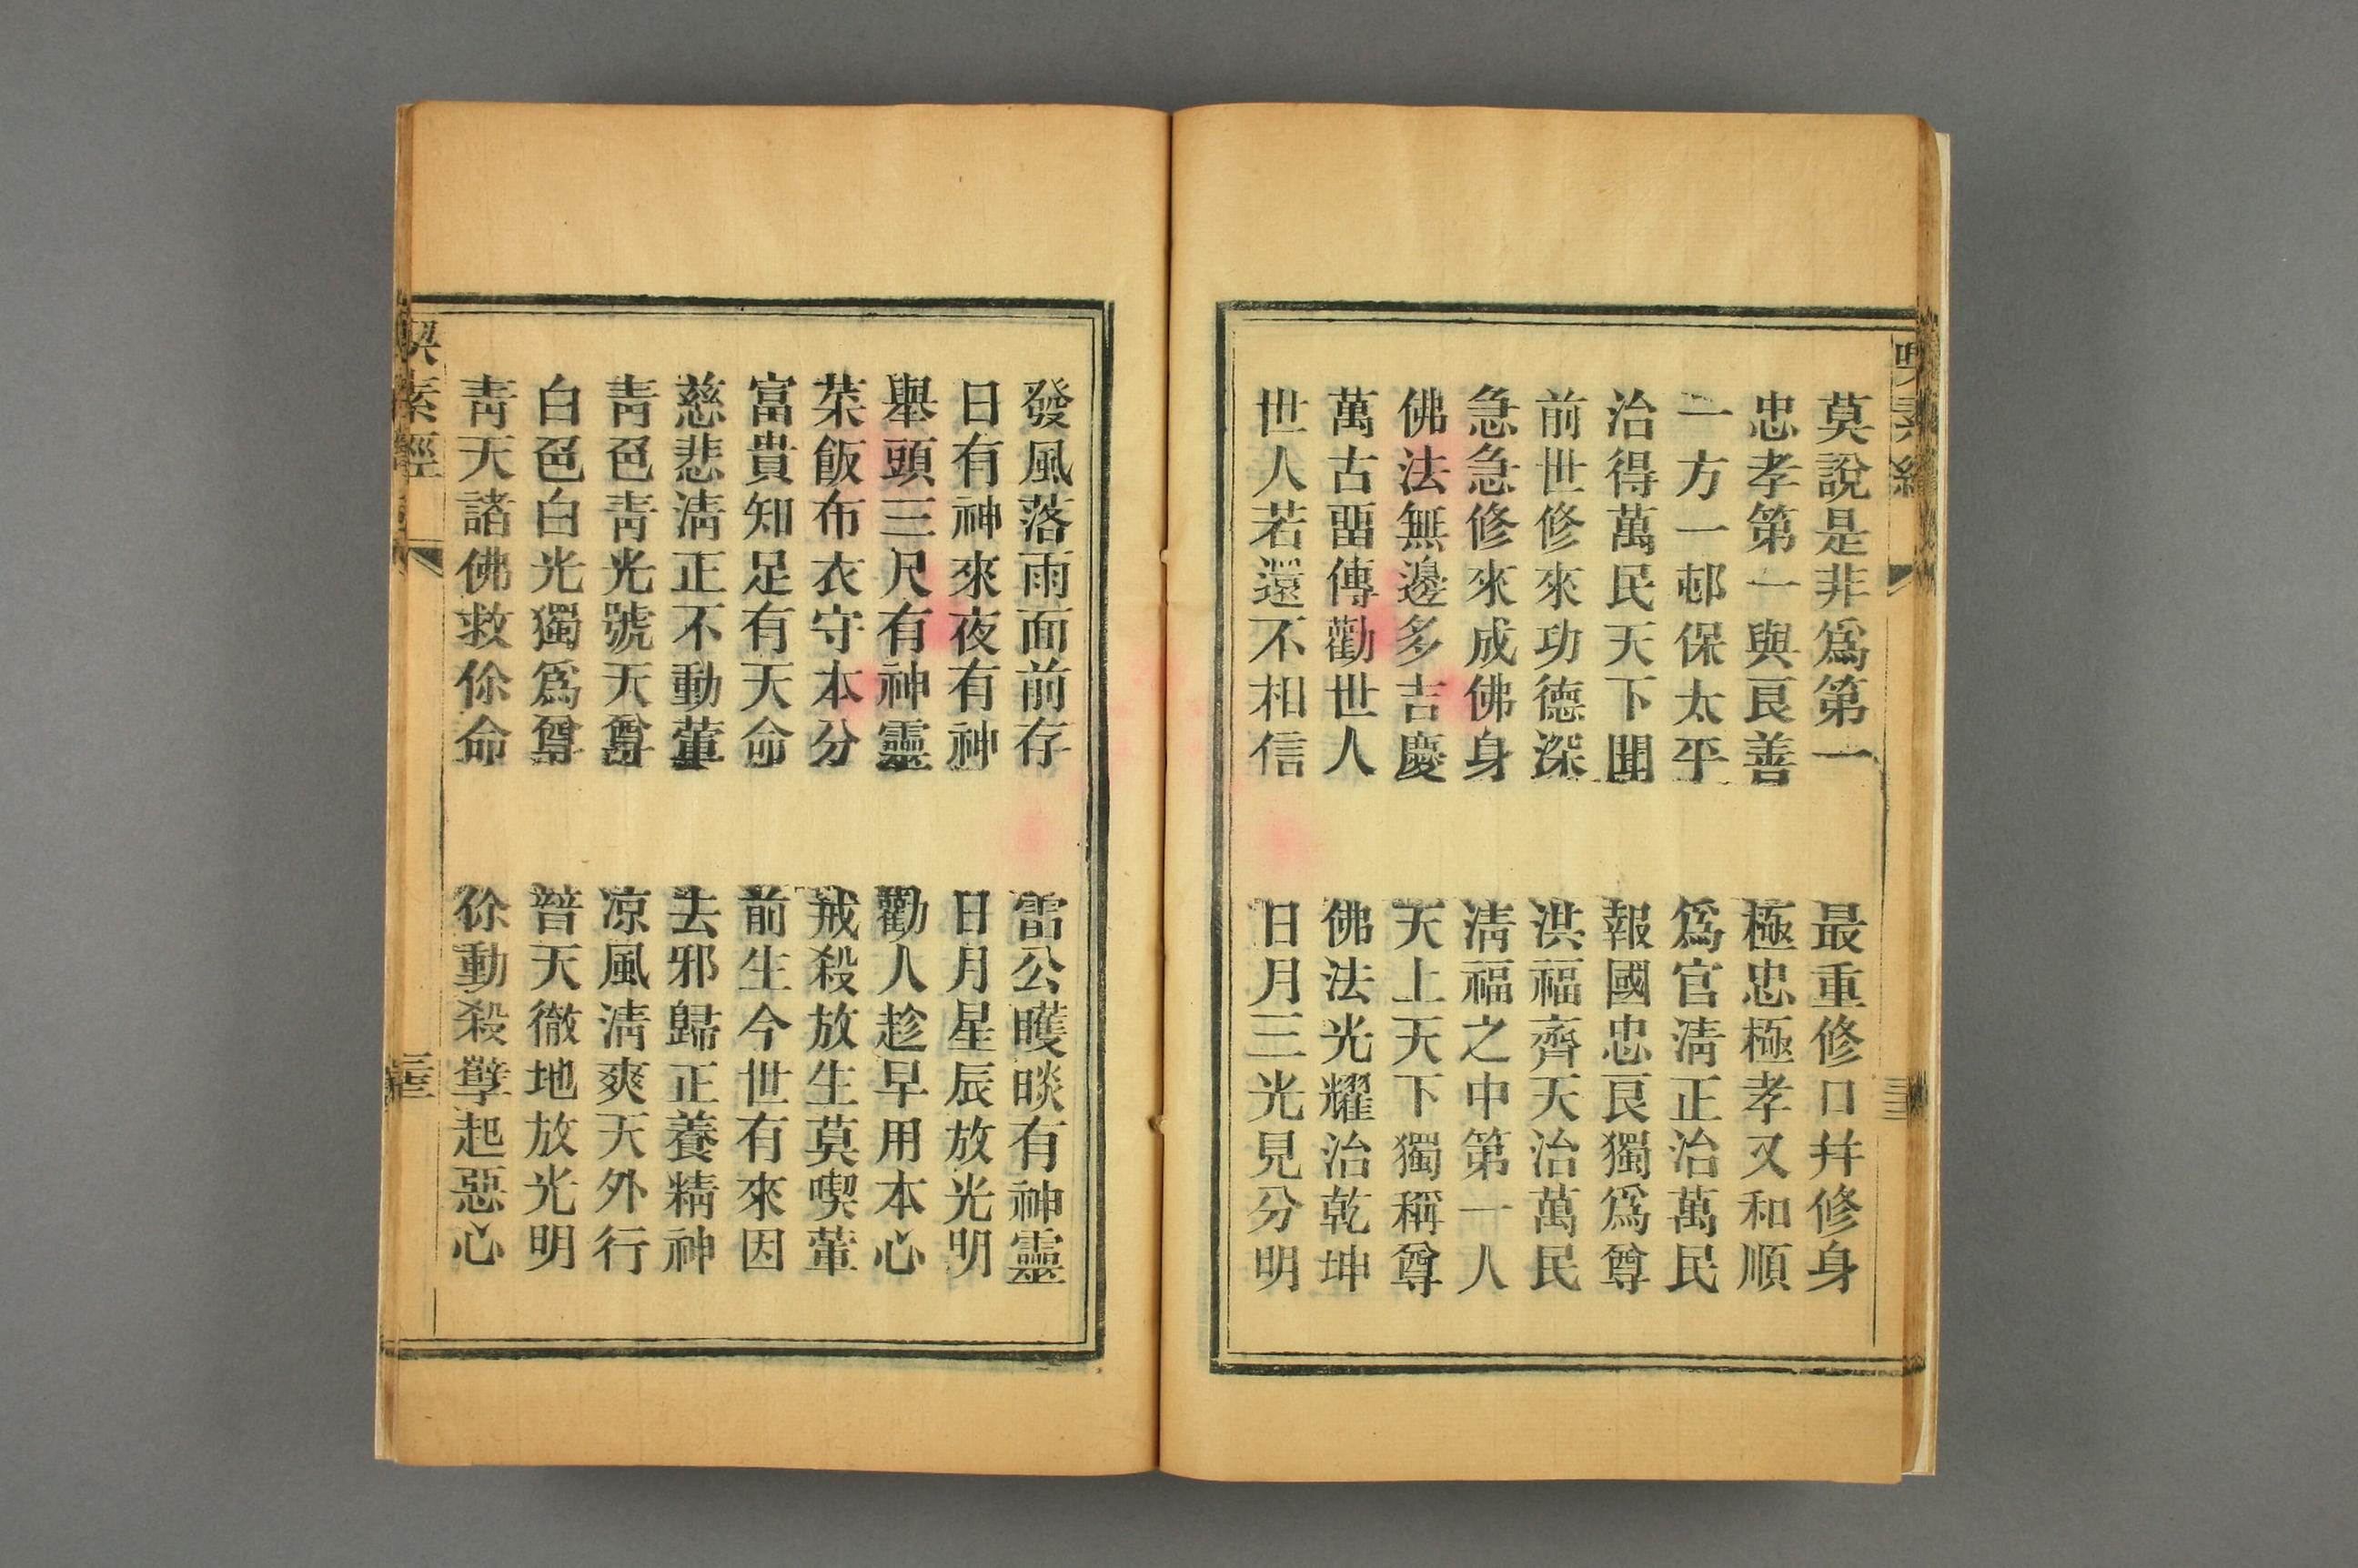 莫說是非爲第一　最重修口并修身
忠孝第一與良善　極忠極孝又和順
一方一邨保太平　爲官淸正治萬民
治得萬民天下聞　報國忠良獨爲尊
前世修來功德深　洪福齊天治萬民
急急修來成佛身　淸福之中第一人
佛法無邊多吉慶　天上天下獨稱尊
萬古畱傳勸世人　佛法光耀治乾坤
世人若還不相信　日月三光見分明
發風落雨面前存　雷公矆睒有神靈
日有神來夜有神　日月星辰放光明
舉頭三尺有神靈　勸人趁早用本心
菜飯布衣守本分　戒殺放生莫喫葷
富貴知足有天命　前生今世有來因
慈悲淸正不動葷　去邪歸正養精神
靑色靑光號天尊　凉風淸爽天外行
白色白光獨爲尊　普天徹地放光明
靑天諸佛救你命　你動殺孽起惡心
喫素經